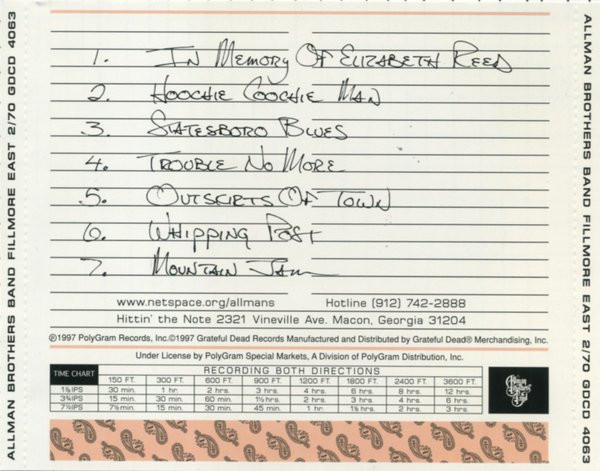 ALLMAN BROTHERS BAND FILLMORE EAST 2/70 GDCD 4063
1. IN MEMORY OF ELIZABETH REED
2. HOOCHIE COOCHIE MAN
3. STATESBORO BLUES
4. TROUBLE NO MORE
5. OUTSCIRTS OF TOWN
6. WHIPPING POST
7. MOUNTAIN JAM
www.netspace.org/allmans Hotline (912) 742-2888
Hittin' the Note 2321 Vineville Ave. Macon, Georgia 31204
℗1997 PolyGram Records, Inc.©1997 Grateful Dead Records Manufactured and Distributed by Grateful Dead® Merchandising, Inc.
Under License by PolyGram Special Markets, A Division of PolyGram Distribution, Inc.
TIME CHART RECORDING BOTH DIRECTIONS
150 FT. 300 FT. 600 FT. 900 FT. 1200 FT. 1800 FT. 2400 FT. 3600 FT.
1⅞IPS 30 min. 1 hr. 2 hrs. 3 hrs. 4 hrs. 6 hrs. 8 hrs. 12 hrs.
3¾IPS 15 min. 30 min. 60 min. 1½ hrs. 2 hrs. 3 hrs. 4 hrs. 6 hrs.
7½IPS 7½ min. 15 min. 30 min. 45 min. 1 hr. 1½ hrs. 2 hrs. 3 hrs.
ALLMAN BROTHERS BAND FILLMORE EAST 2/70 GDCD 4063